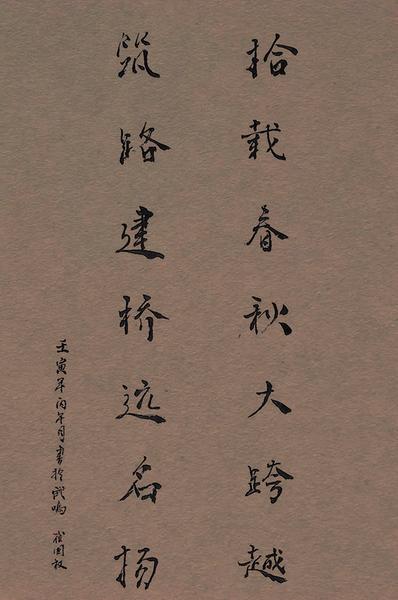 拾载春秋大跨越
筑路建桥远名扬
壬寅年丙午月书於武鸣 崔国权